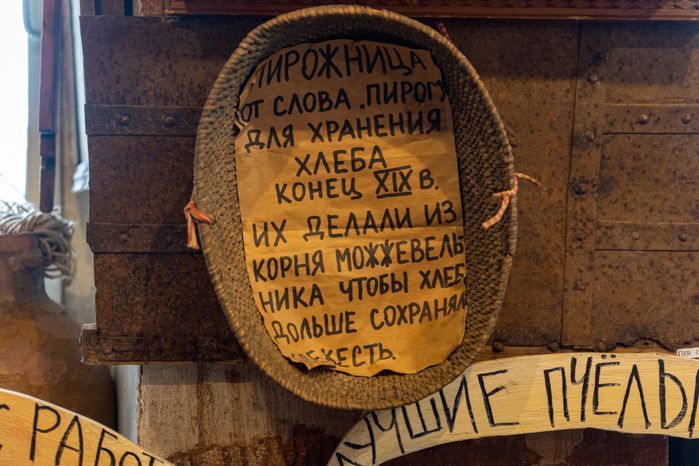 ПИРОЖНИЦА
ОТ СЛОВА „ПИРОГ"
ДЛЯ ХРАНЕНИЯ
ХЛЕБА
КОНЕЦ XIX В.
ИХ ДЕЛАЛИ ИЗ
КОРНЯ МОЖЖЕВЕЛЬ
НИКА ЧТОБЫ ХЛЕБ
ДОЛЬШЕ СОХРАНЯЛ
СВЕЖЕСТЬ.
ЛУЧШИЕ ПЧЁЛЫ
С РАБОТ